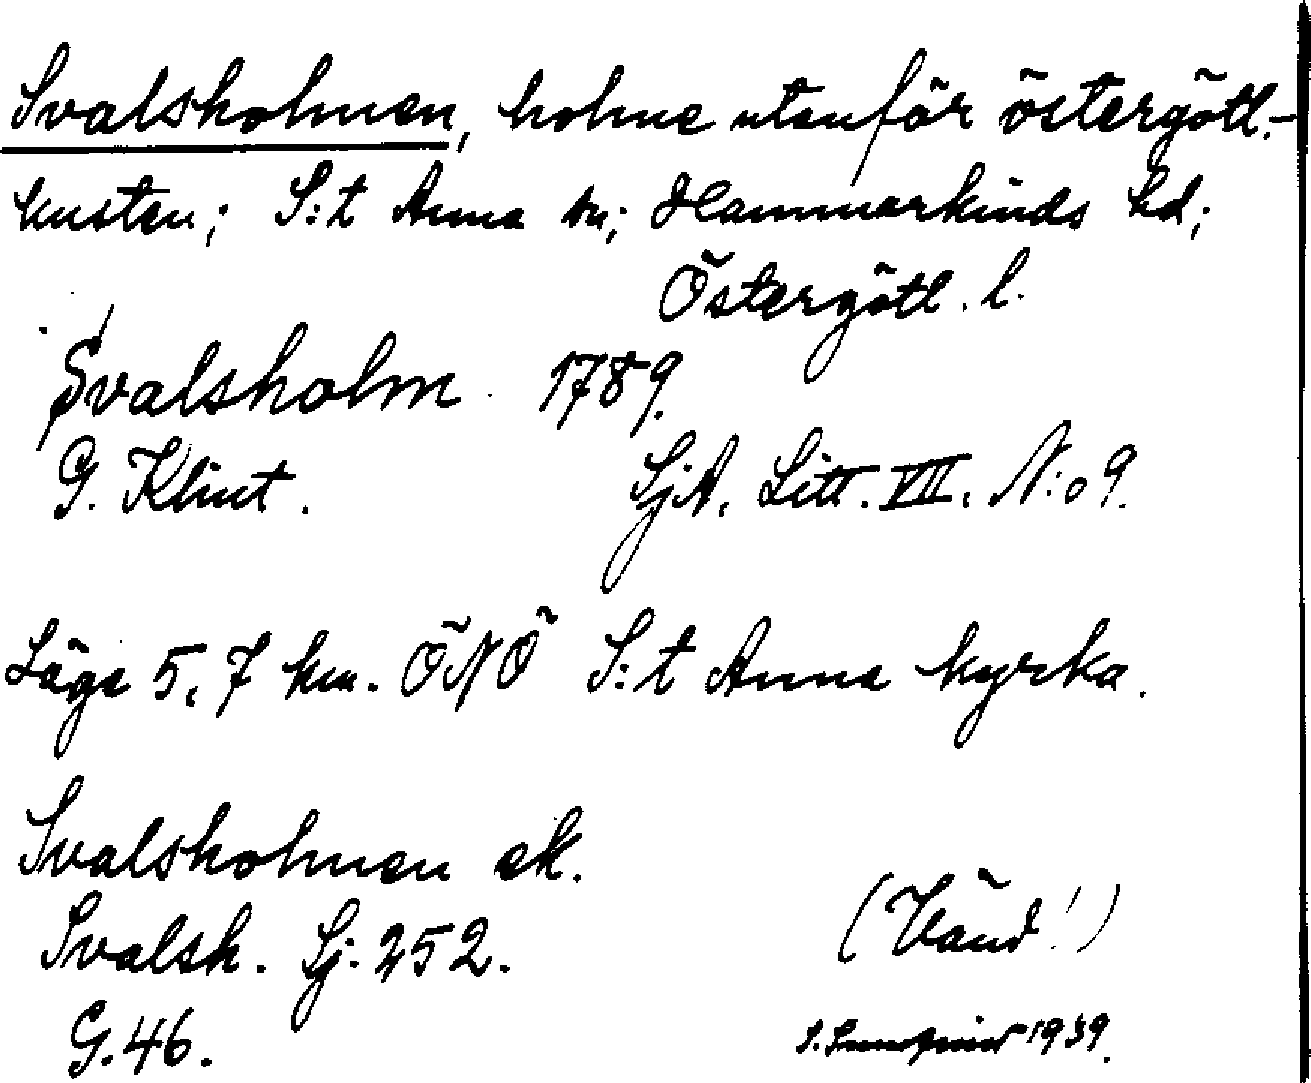 Svalsholmen, holme utanför östergötl.-
kusten; S:t Anna sn; Hammarkinds hd;
Östergötl. l.
Svalsholm 1789.
G. Klint. SjA. Litt. VII. N:o 9.
Läge 5,7 km. ÖNÖ S:t Anna kyrka.
Svalsholmen ek.
Svalsh. Sj. 252.
G. 46.
(Vänd!)
1939.